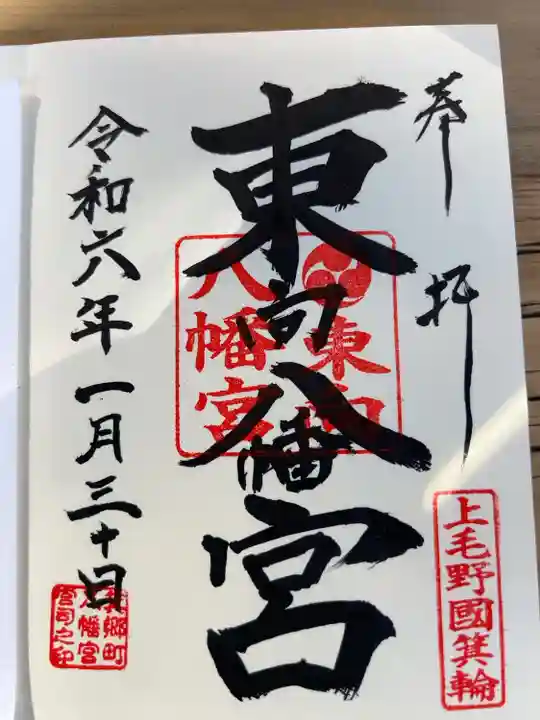 奉拝
東向八幡宮
八幡宮
東向
上毛野國箕輪
令和六年一月三十日
郷町
八幡宮
宮司之印